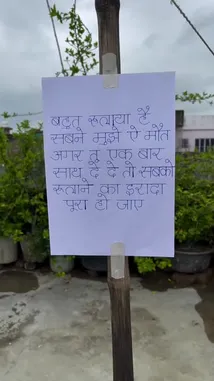 बहुत रुलाया है
सबने मुझे ऐ मौत
अगर तू एक बार
साथ दे दे तो सबको
रुलाने का इरादा
पूरा हो जाए